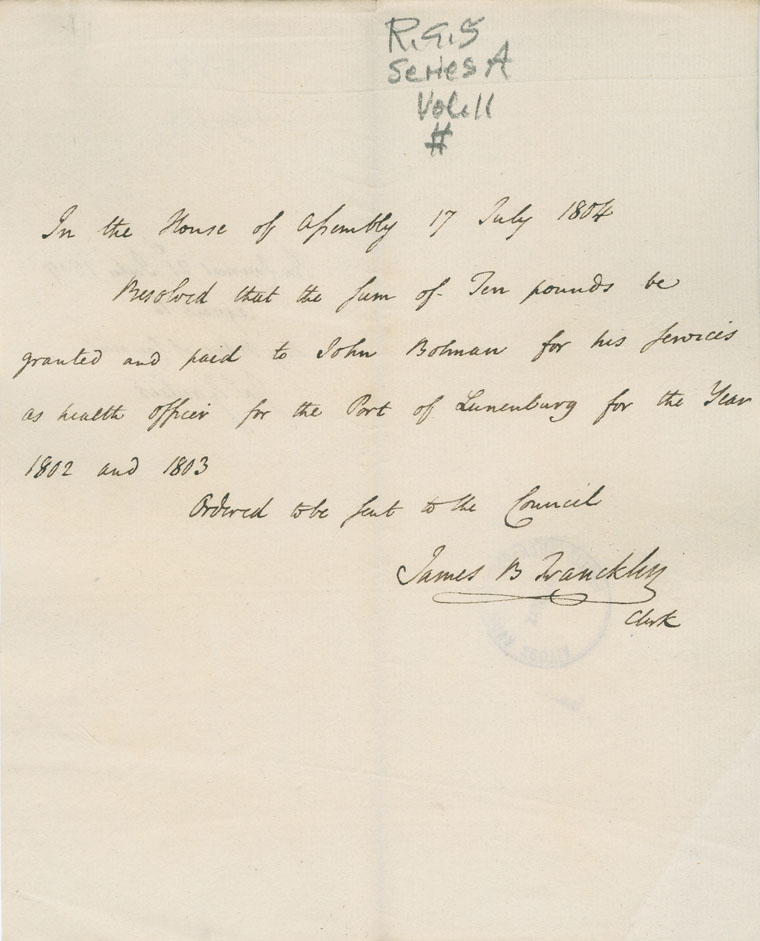 R.G.5
Series A
Vol. 11
#
In the House of Assembly 17 July 1804
Resolved that the sum of Ten pounds be
granted and paid to John Bolman for his services
as health officer for the Port of Lunenburg for the Year
1802 and 1803
Ordered to be sent to the Council
James B Franckley
Clerk